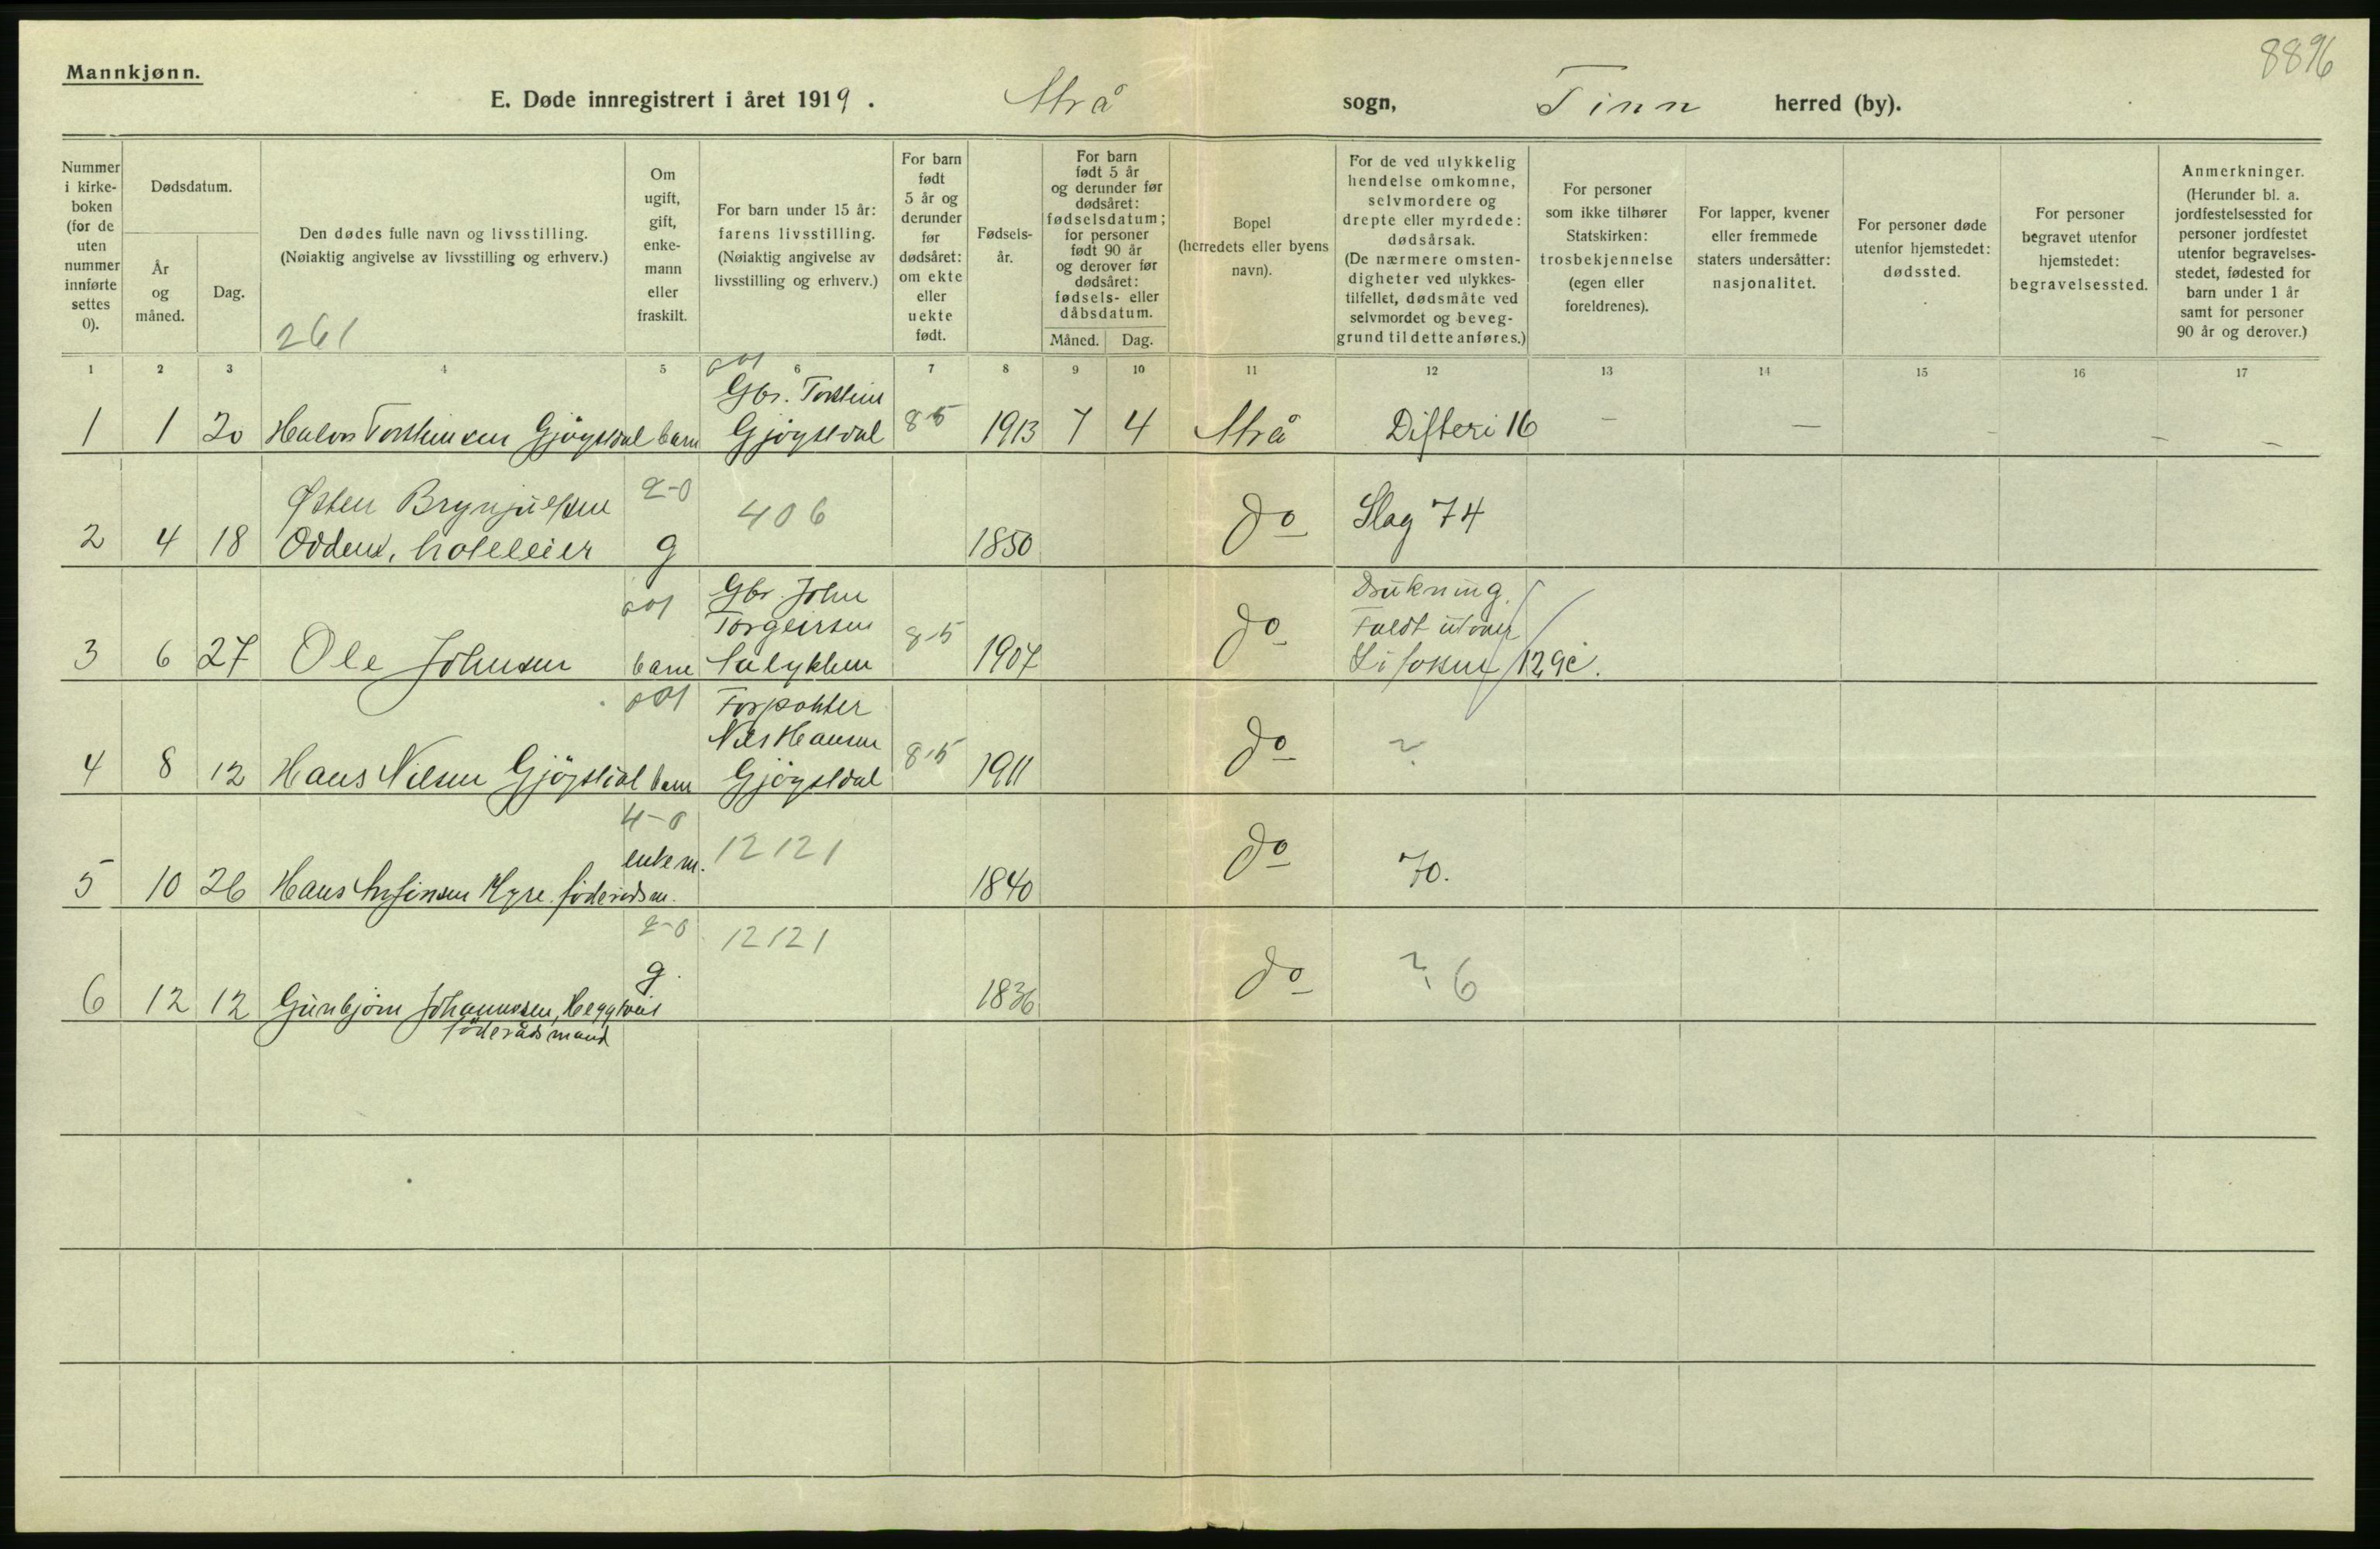 8896
Mannkjønn.
E. Døde innregistrert i året 1919. Atrå sogn, Tinn herred (by).
Nummer i kirkeboken (for de uten nummer innførte settes 0).
Dødsdatum.
År og måned.
Dag.
Den dødes fulle navn og livsstilling.
(Nøiaktig angivelse av livsstilling og erhverv.)
261
Om ugift, gift, enkemann eller fraskilt.
For barn under 15 år: farens livsstilling.
(Nøiaktig angivelse av livsstilling og erhverv.)
For barn født 5 år og derunder før dødsåret: om ekte eller uekte født.
Fødselsår.
For barn født 5 år og derunder før dødsåret: fødselsdatum; for personer født 90 år og derover før dødsåret: fødsels- eller dåbsdatum.
Måned.
Dag.
Bopel (herredets eller byens navn).
For de ved ulykkelig hendelse omkomne, selvmordere og drepte eller myrdede: dødsårsak.
(De nærmere omstendigheter ved ulykkestilfellet, dødsmåte ved selvmordet og beveggrund til dette anføres.)
For personer som ikke tilhører Statskirken: trosbekjennelse (egen eller foreldrenes).
For lapper, kvener eller fremmede staters undersåtter: nasjonalitet.
For personer døde utenfor hjemstedet: dødssted.
For personer begravet utenfor hjemstedet: begravelsessted.
Anmerkninger.
(Herunder bl. a. jordfestelsessted for personer jordfestet utenfor begravelsesstedet, fødested for barn under 1 år samt for personer 90 år og derover.)
1 2 3 4 5 6 7 8 9 10 11 12 13 14 15 16 17
001
Gbr. Torstein
1 1 20 Halvor Torsteinsen Gjøystdal barn Gjøystdal 8-5 1913 7 4 Atrå Difteri 16 — — — — —
Østen Brynjulfsen 2-0 406
2 4 18 Odden, hoteleier g 1850 do Slag 74
001 Gbr. John Drukning.
Torgeirsen Faldt utover
3 6 27 Ole Johnsen barn 8-5 1907 do 129c.
001 Forpakter
Nils Hansen
4 8 12 Hans Nilsen Gjøystdal barn Gjøystdal 8-5 1911 do ?
4-0
enkem. 12121
5 10 26 Hans Myre. føderådsm. 1840 do 70.
2-0 12121
g.
6 12 12 Gunbjørn Johannessen, 1836 do ? 6
føderådsmand